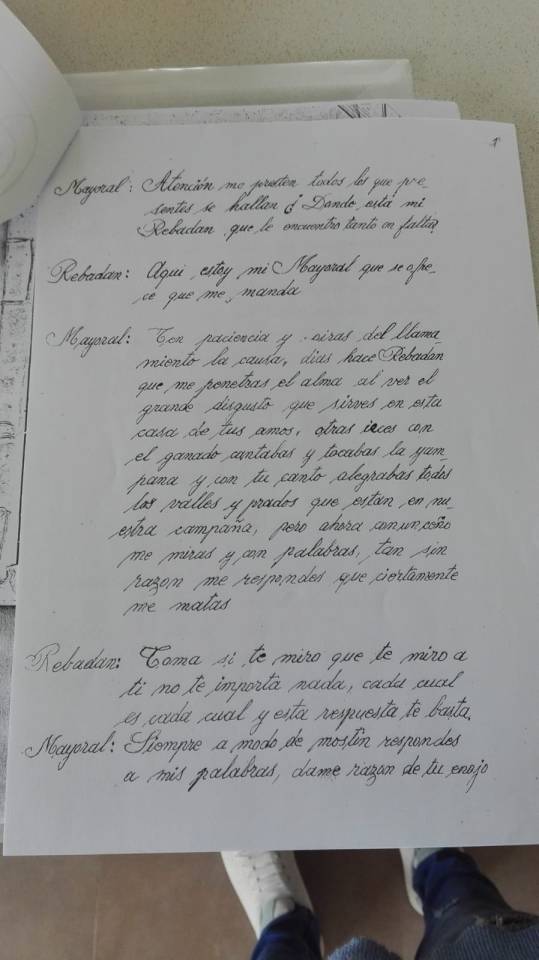 1
Mayoral: Atención me presten todos los que pre_
sentes se hallan ¿ Donde está mi
Rebadan que le encuentro tanto en falta?
Rebadan: Aqui estoy mi Mayoral que se ofre_
ce que me manda
Mayoral: Ten paciencia y oiras del llama_
miento la causa, dias hace Rebadan
que me penetras el alma al ver el
grande disgusto que sirves en esta
casa de tus amos, otras veces con
el ganado cantabas y tocabas la yam_
pana y con tu canto alegrabas todos
los valles y prados que estan en nu_
estra campaña, pero ahora con un ceño
me miras y con palabras, tan sin
razon me respondes que ciertamente
me matas
Rebadan: Toma si te miro que te miro a
ti no te importa nada, cada cual
es cada cual y esta respuesta te basta.
Mayoral: Siempre a modo de mostin respondes
a mis palabras, dame razon de tu enojo